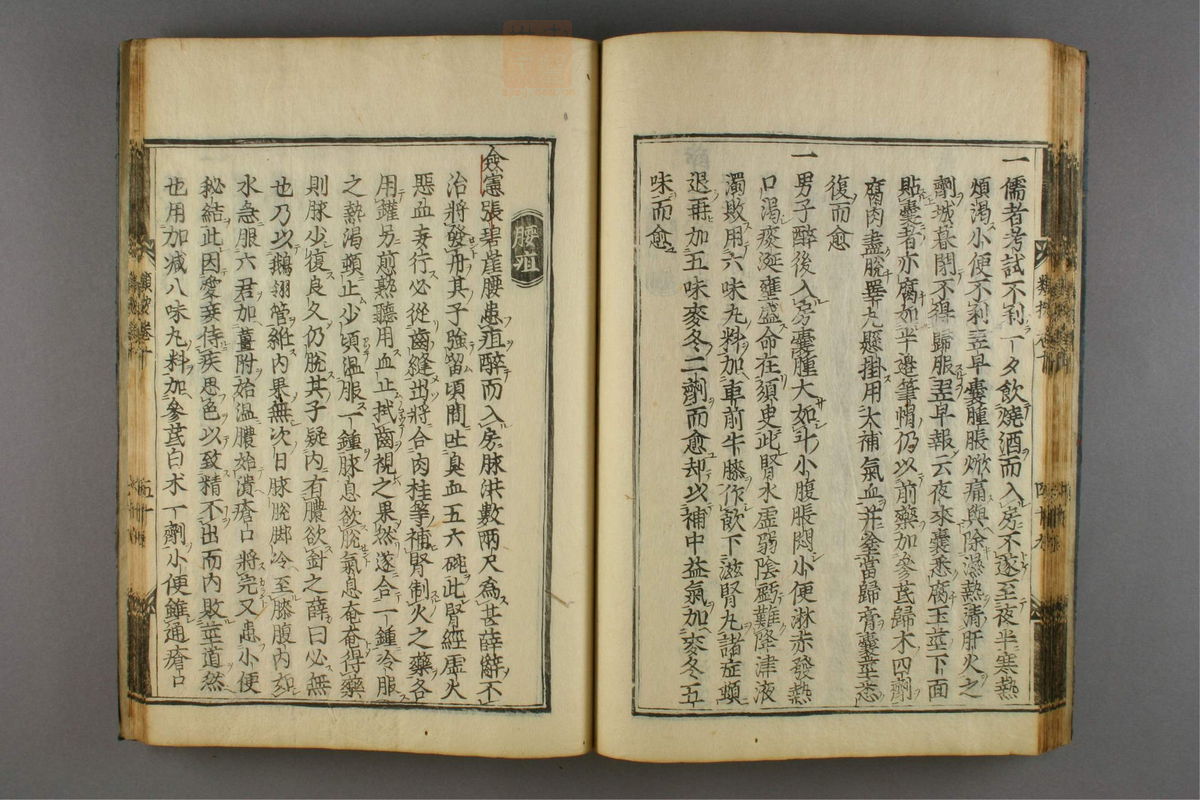 一儒者考試不利一夕飲燒酒而入房不遂至夜半寒熱
煩渴小便不利翌早囊腫脹焮痛與除濕熱清肝火之
劑城暮閉不得歸服翌早報云夜來囊悉腐玉莖下面
貼囊者亦腐如半邊筆帽仍以前藥加參芪歸朮四劑
腐肉盡脫睪丸懸掛用大補氣血并塗當歸膏囊莖悉
復而愈
一男子醉後入房囊腫大如斗小腹脹悶小便淋赤發熱
口渴痰涎壅盛命在須臾此腎水虛弱陰虧難降津液
濁敗用六味丸料加車前牛膝作飲下滋腎丸諸症頓
退再加五味麥冬二劑而愈却以補中益氣加麥冬五
味而愈
腰疽
僉憲張碧崖腰患疽醉而入房脉洪數兩尺為甚薛辭不
治將發舟其子強留頃間吐臭血五六碗此腎經虛火
惡血妄行必從齒縫出將合肉桂等補腎制火之藥各
用罐另煎熟聽用血止拭齒視之果然遂合一鍾冷服
之熱渴頓止少頃溫服一鍾脉息欲脫氣息奄奄得藥
則脉少復良久仍脫其子疑內有膿欲針之薛曰必無
也乃以鵝翎管絍內果無次日脉脫脚冷至膝腹內如
水急服六君加薑附始溫膿始潰瘡口將完又患小便
秘結此因愛妾侍疾思色以致精不出而內敗莖道然
也用加減八味丸料加參芪白朮一劑小便雖通瘡口